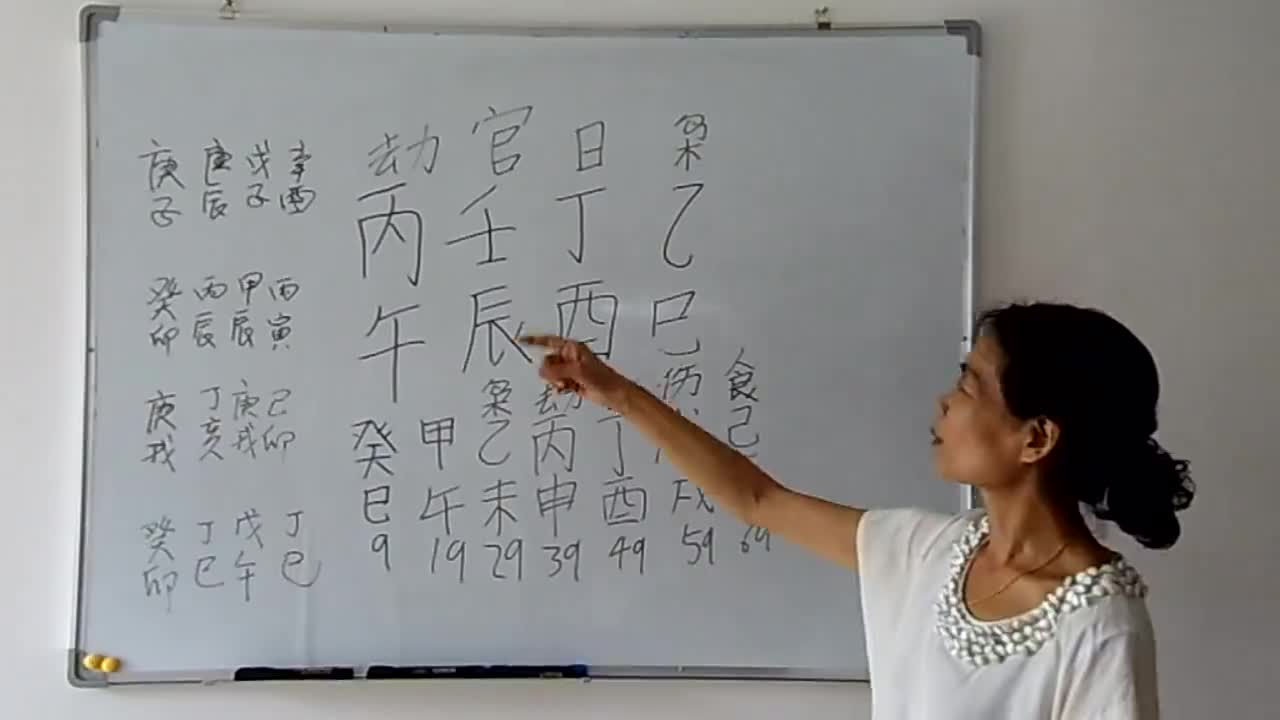 庚 庚 戊 辛
子 辰 子 酉
癸 丙 甲 丙
卯 辰 辰 寅
庚 丁 庚 己
戌 亥 戌 卯
癸 丁 戊 丁
卯 巳 午 巳
劫 官 日 枭
丙 壬 丁 乙
午 辰 酉 巳
枭 劫 伤 食
癸 甲 乙 丙 丁 己
巳 午 未 申 酉 戌
9 19 29 39 49 59 69